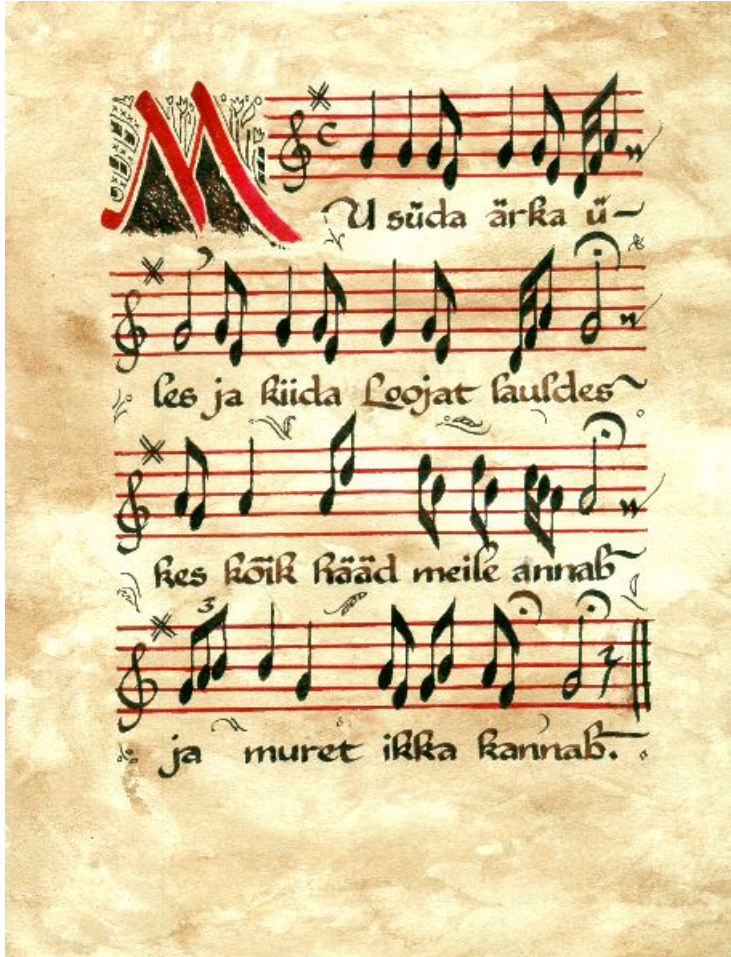 MU süda ärka ü-
les ja kiida Loojat lauldes
kes kõik hääd meile annab
3
ja muret ikka kannab.